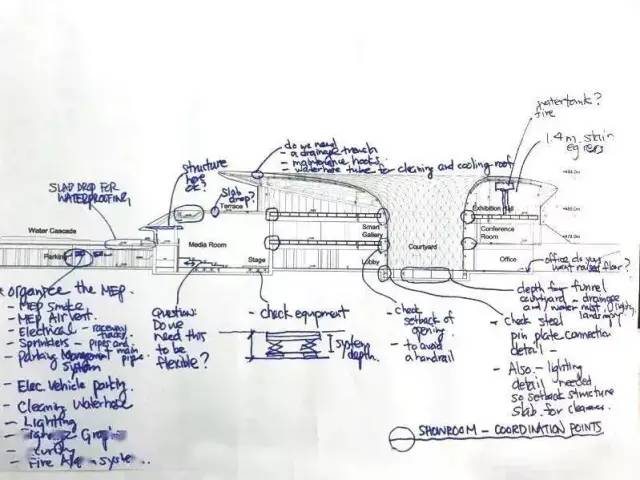 watertank?
fire
1.4m stair
egress
do we need
- a drainage trench
- maintenance hooks
- waterhose tube for cleaning and cooling roof
structure
here
OK?
Slab
drop?
Terrace
SLAB DROP FOR
WATERPROOFING
Water Cascade
Parking
Media Room
Stage
Smart
Gallery
Lobby
Courtyard
Exhibition Hall
Conference
Room
Office
office do you
want raised floor?
* organize the MEP.
- MEP Smoke
- MEP Air vent.
- Electrical - raceway
- Sprinklers - pipes and main
- Parking Management pipe
System
- Elec. Vehicle parking.
- Cleaning Waterhose
- Lighting
- Fire
Question:
Do we
need this
to be
flexible?
- check equipment
system
depth.
- check
setback of
opening
- to avoid
a handrail
depth for funnel
courtyard - drainage
and water mist, lighting
landscaping
- Check steel
pin plate connection
detail -
- Also - lighting
detail needed
so setback structure
slab for clearance.
SHOWROOM - COORDINATION POINTS